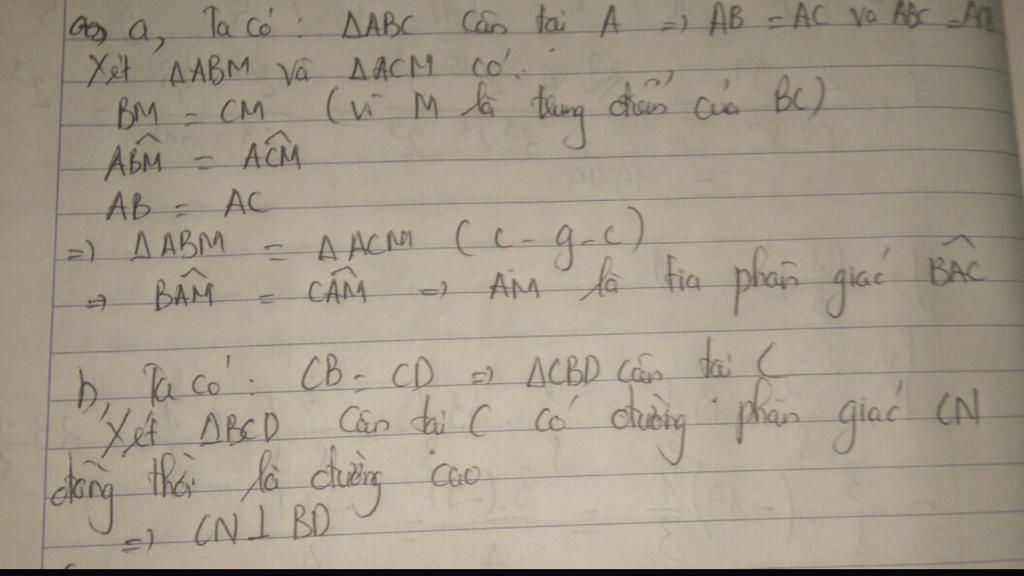 a, Ta có: ΔABC cân tại A => AB = AC và ABC =
Xét ΔABM và ΔACM có:
BM = CM (vì M là trung điểm của BC)
ABM̂ = ACM̂
AB = AC
=> ΔABM = ΔACM (c-g-c)
=> BAM̂ = CAM̂ => AM là tia phân giác BAĈ
b, Ta có: CB = CD => ΔCBD cân tại C
Xét ΔBCD cân tại C có đường phân giác CN
đồng thời là đường cao
=> CN ⊥ BD